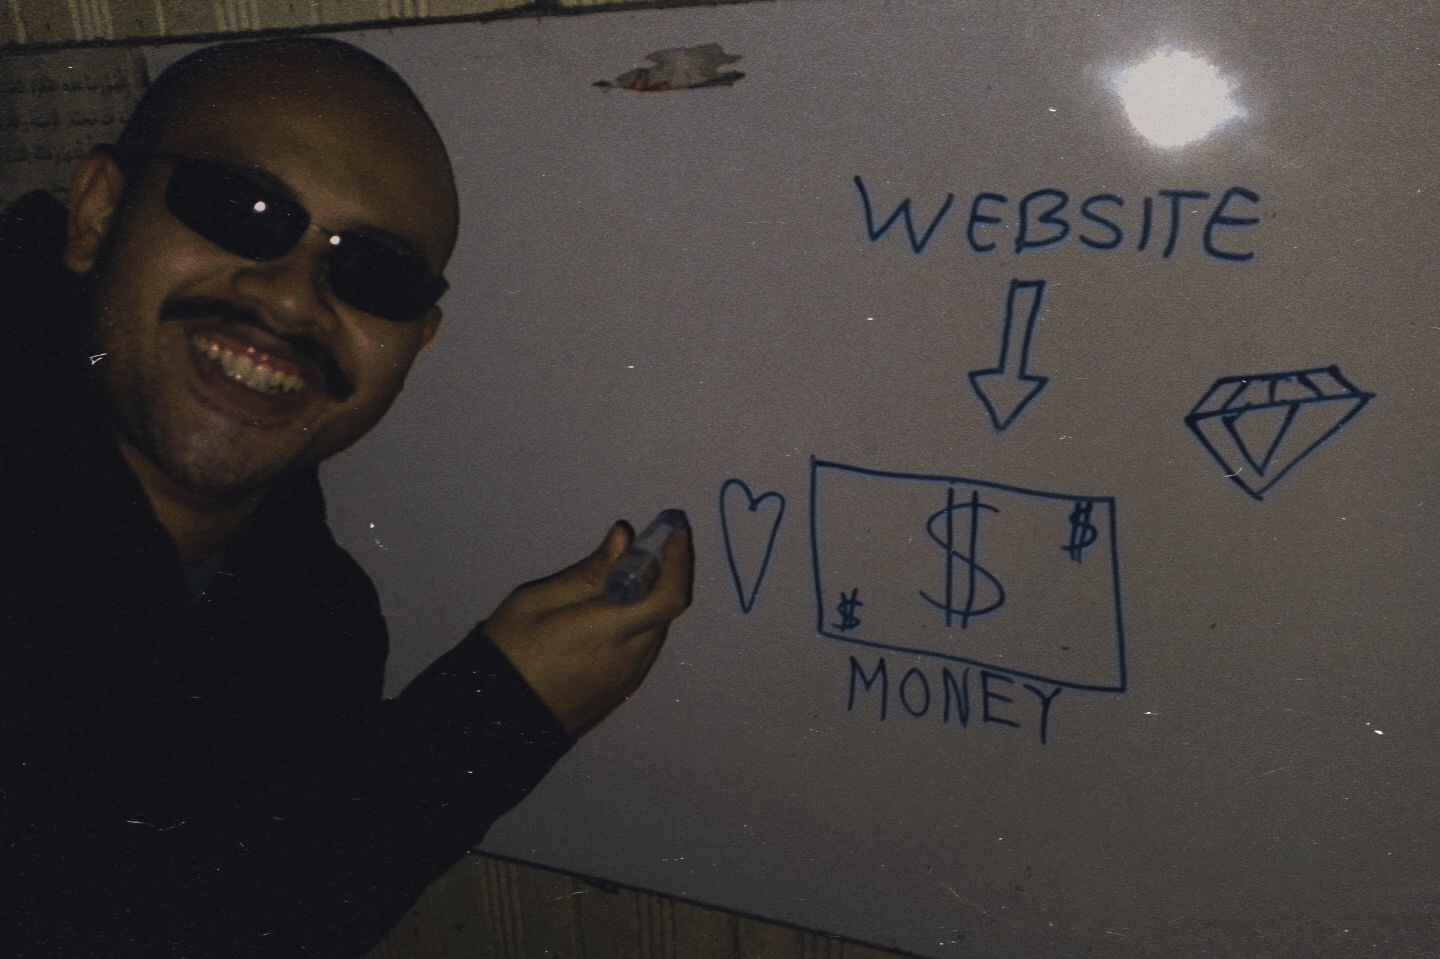 WEBSITE
$
$
$
MONEY